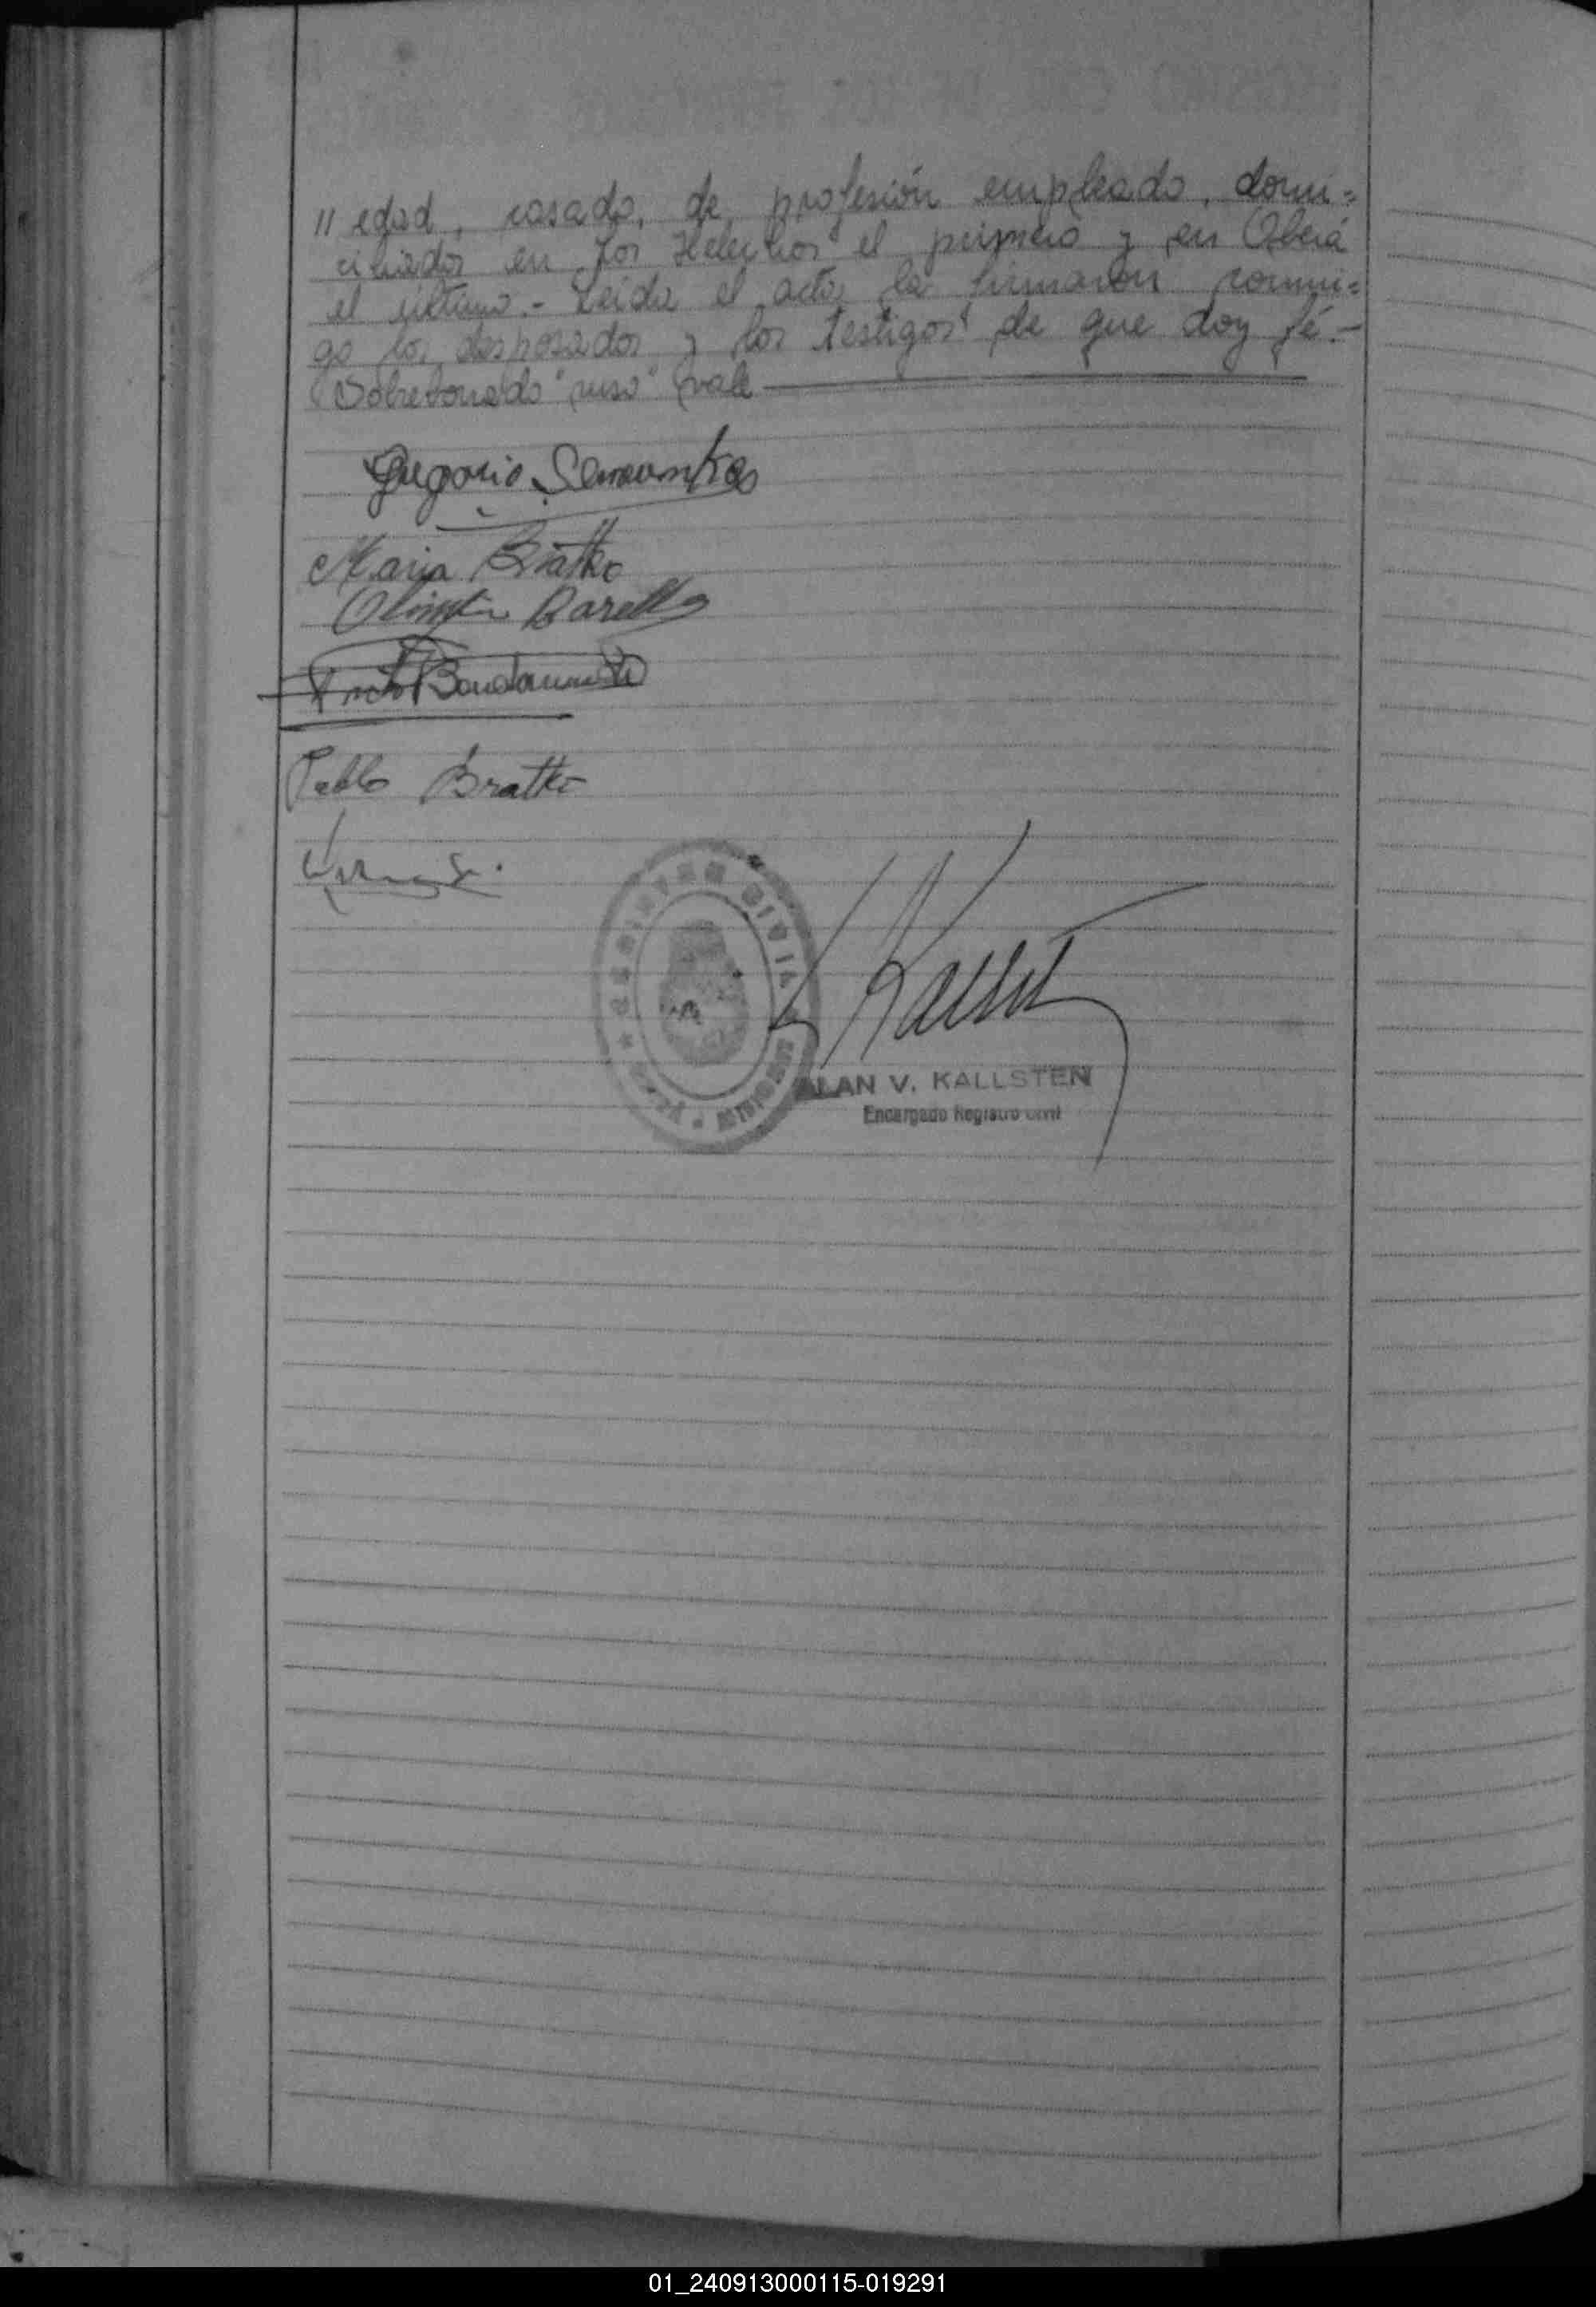 " edad, casado, de profesión empleado, domi=
ciliados en Los Helechos el primero y en Oberá
el último.- Leida el acta la firmaron conmi=
go los desposados y los testigos de que doy fé.-
Sobreborrado "ruso" vale
Gregorio
Maria Bratko
Pablo Bratko
REGISTRO CIVIL
MISIONES
ALAN V. KALLSTEN
Encargado Registro Civil
01_240913000115-019291